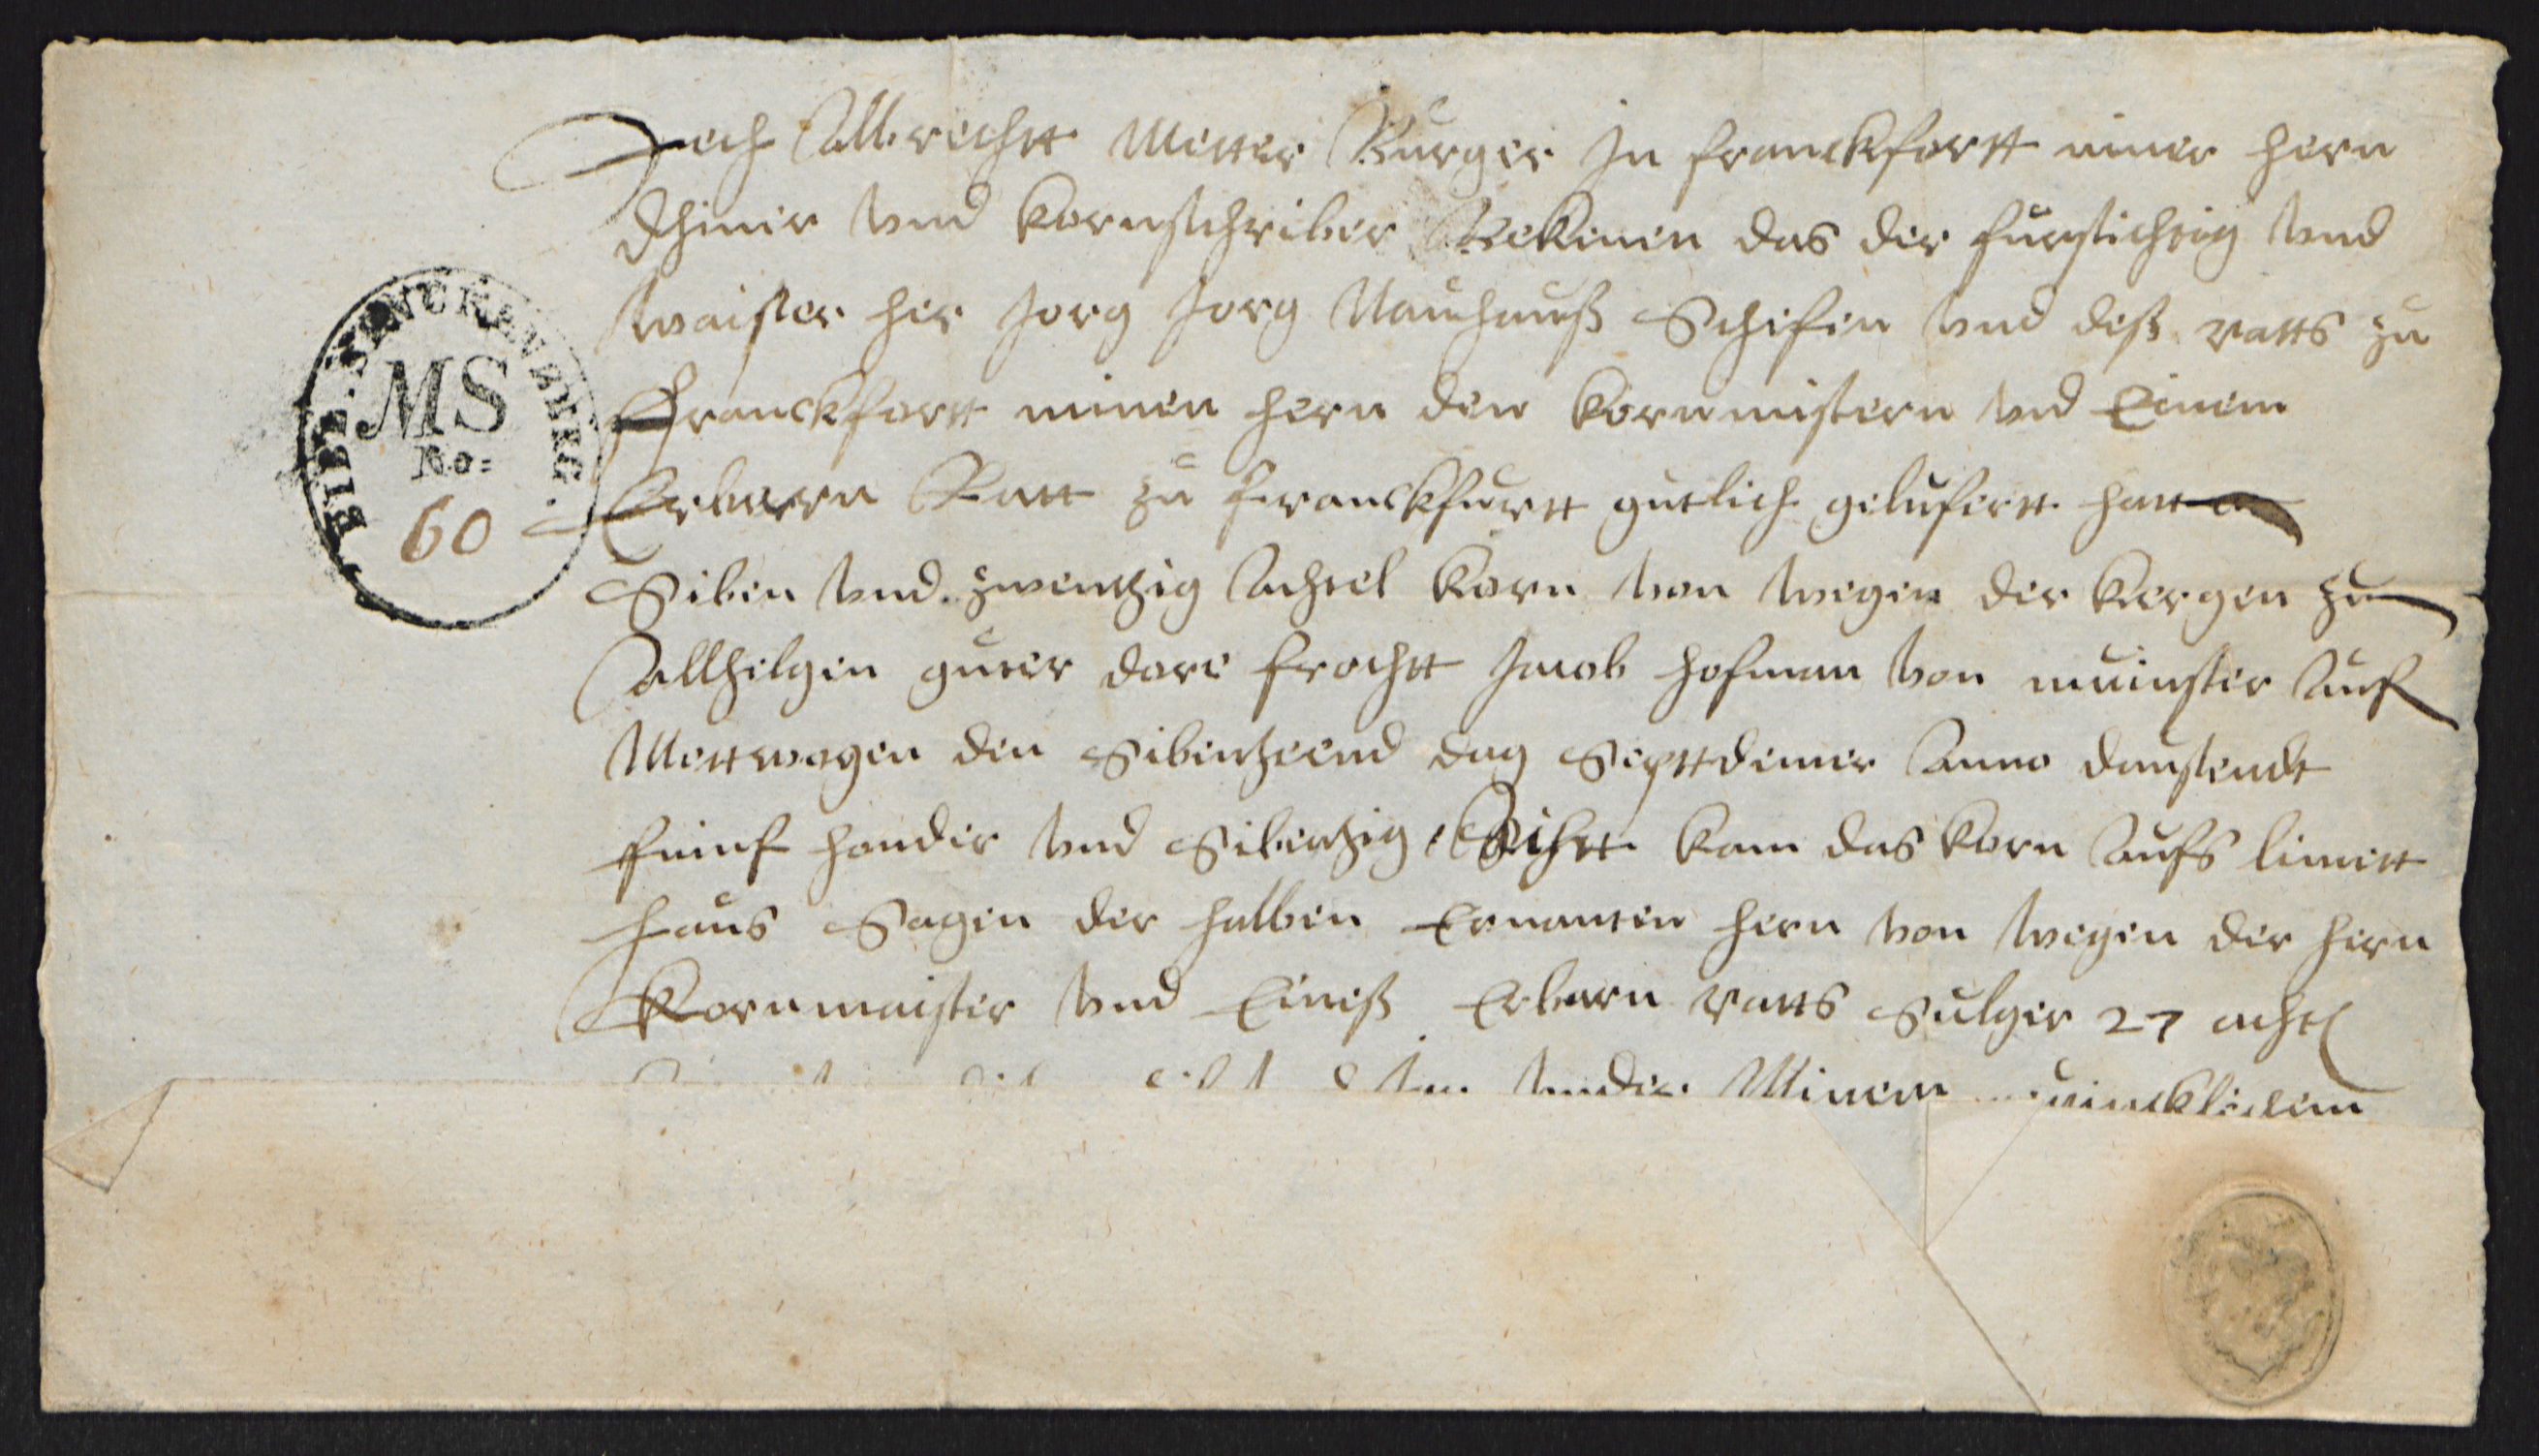 Jch Albrechtt Metter Burger Jn franckfortt miner hern
dhiner vnd kornschriber Bekenen das der fursichtig vnd
waiser her Jorg Jorg Nauhauß Schefen vnd deß ratts zu
Franckfortt minen hern den kornmistern vnd Einem
Erbarn Ratt zu Franckfurtt gutlich gelufertt hatt
Siben vnd zwentzig achtel korn von wegen der kergen zu
allhilgen guter dore frochtt Jacob hofman von muinster auf
Mettwogen den Sibentzeend dag Septtdemer Anno dausendt
fuinf honder vnd Sibentzig Achtt kam das korn aufs linwett
haus Sagen der halben Ernanten hern von wegen der hern
Kornmaister vnd Eineß Erbarn ratts Sulger 27 achtl
vnder Minem
BIBL. SENCKENBERG.
MS
No:
60